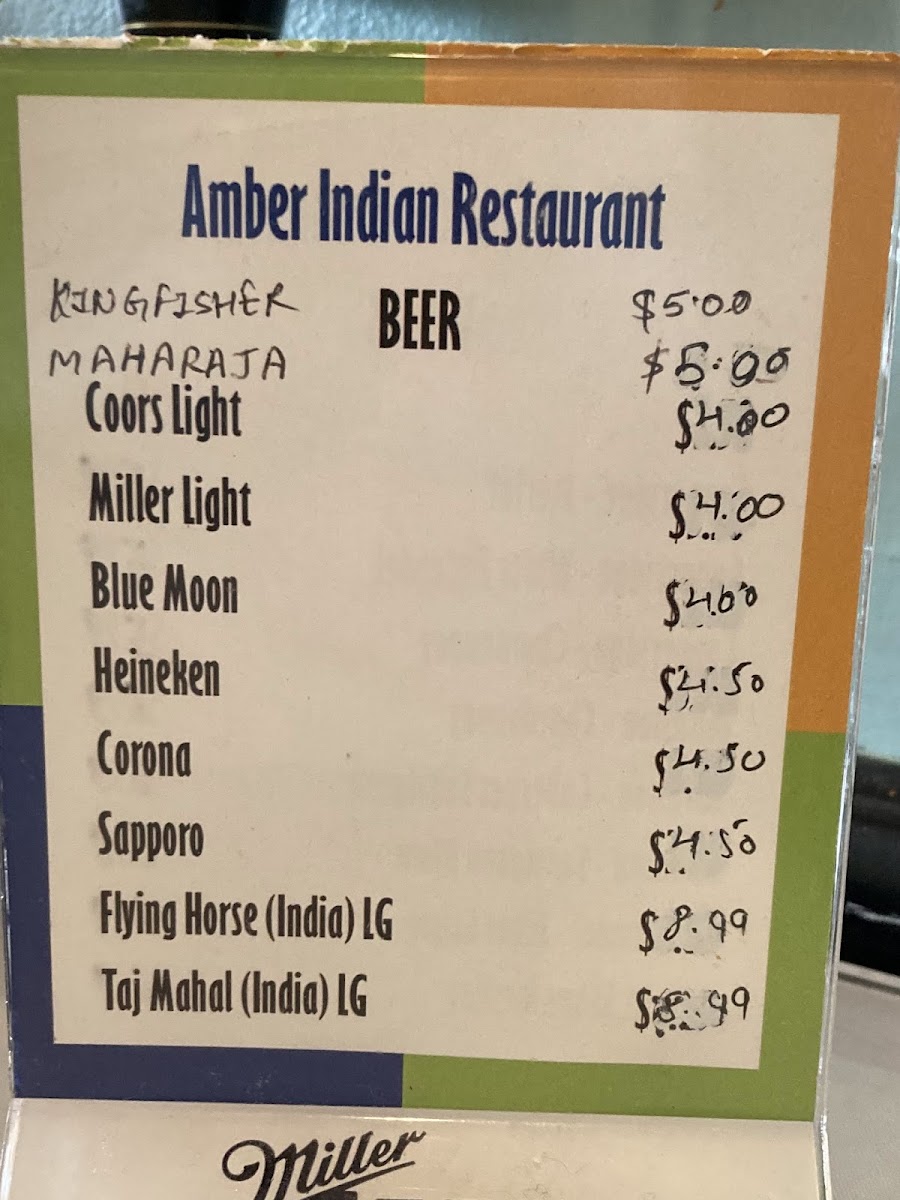 Amber Indian Restaurant
BEER
KINGFISHER $5.00
MAHARAJA $5.00
Coors Light $4.00
Miller Light $4.00
Blue Moon $4.00
Heineken $4.50
Corona $4.50
Sapporo $4.50
Flying Horse (India) LG $8.99
Taj Mahal (India) LG $8.99
Miller